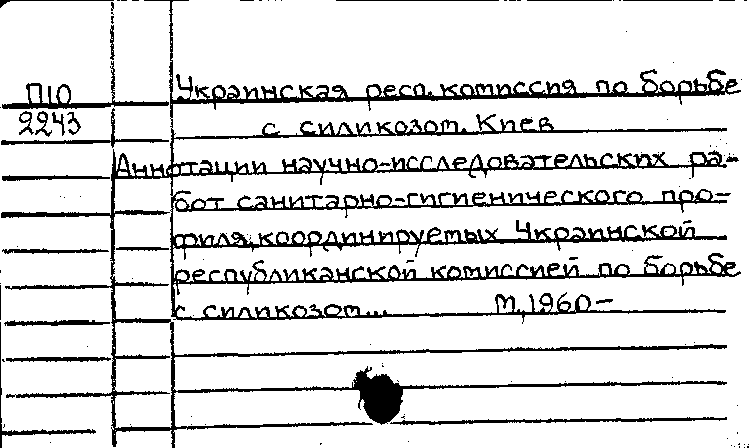 П10
2243
Украинская респ. комиссия по борьбе
с силикозом. Киев
Аннотации научно-исследовательских ра-
бот санитарно-гигиенического про-
филя, координируемых Украинской
республиканской комиссией по борьбе
с силикозом... М., 1960-